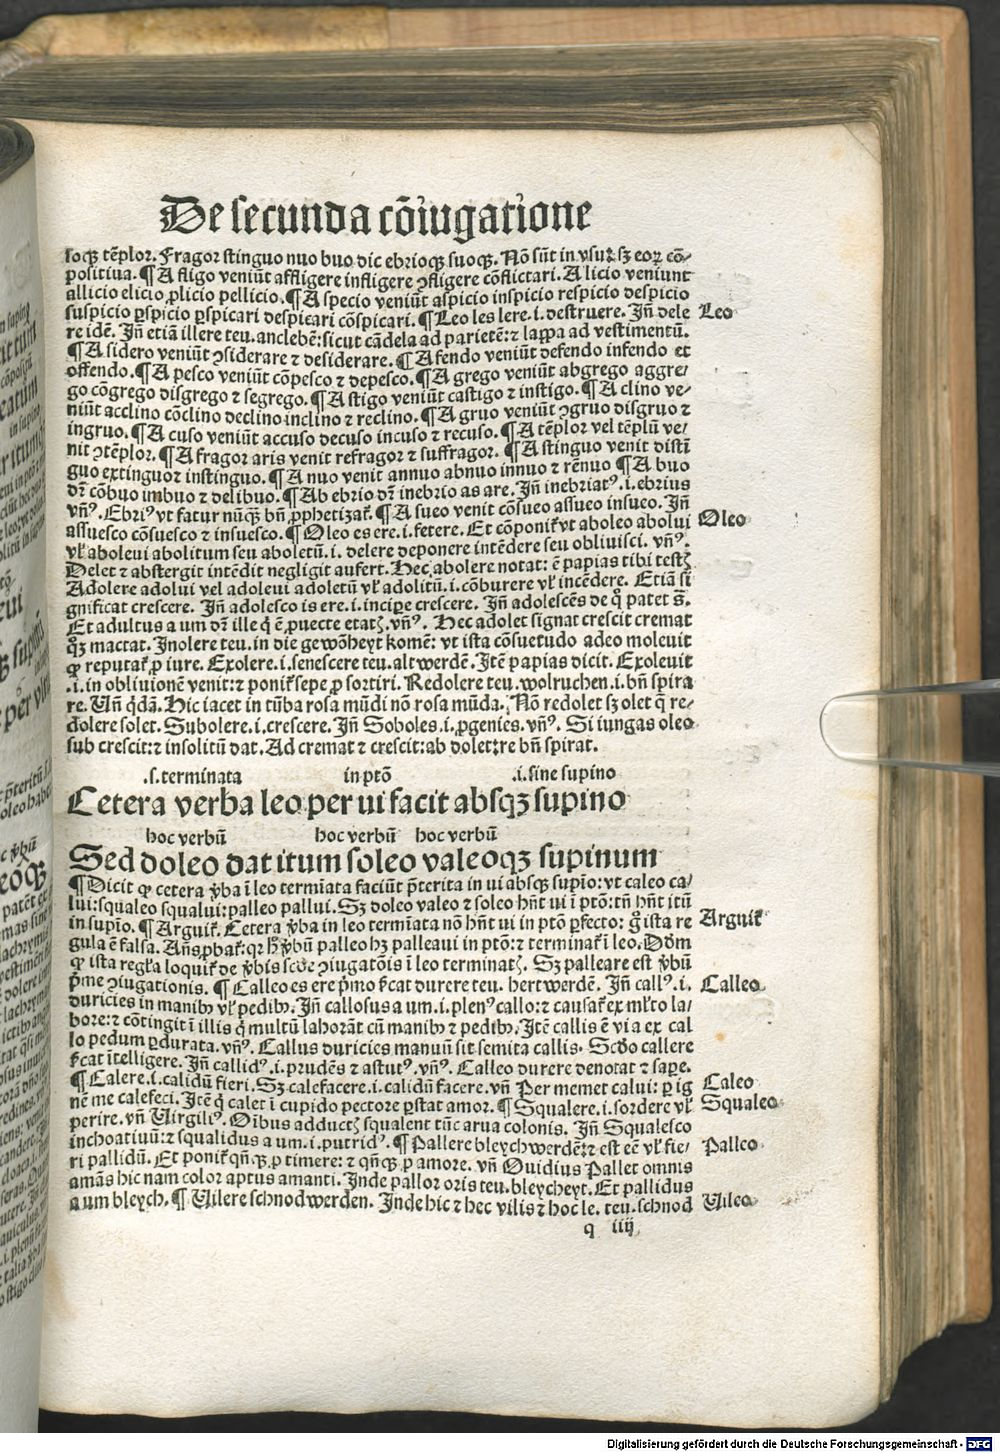 De secunda cōiugatione
soqꝫ tēplor. Fragor stinguo nuo buo dic ebrioqꝫ suoqꝫ. Nō sūt in vsuꝛ sꝫ eoꝝ cō-
positiua. ¶ A fligo veniūt affligere infligere ꝯfligere cōflictari. A licio veniunt
allicio elicio ꝓlicio pellicio. ¶ A specio veniūt aspicio inspicio respicio despicio
suspicio ꝑspicio ꝑspicari despicari cōspicari. ¶ Leo les lere .i. destruere. Jñ dele
Leo
re idē. Jñ etiā illere teu. anclebē: sicut cādela ad parietē: ⁊ lappa ad vestimentū.
¶ A sidero veniūt ꝯsiderare ⁊ desiderare. ¶ A fendo veniūt defendo infendo et
offendo. ¶ A pesco veniūt cōpesco ⁊ depesco. ¶ A grego veniūt abgrego aggre-
go cōgrego disgrego ⁊ segrego. ¶ A stigo veniūt castigo ⁊ instigo. ¶ A clino ve-
niūt acclino cōclino declino inclino ⁊ reclino. ¶ A gruo veniūt ꝯgruo disgruo ⁊
ingruo. ¶ A cuso veniūt accuso decuso incuso ⁊ recuso. ¶ A tēplor vel tēplū ve-
nit ꝯtēplor. ¶ A fragor aris venit refragor ⁊ suffragor. ¶ A stinguo venit distī
guo extinguo ⁊ instinguo. ¶ A nuo venit annuo abnuo innuo ⁊ rēnuo ¶ A buo
dr̄ cōbuo imbuo ⁊ delibuo. ¶ Ab ebrio dr̄ inebrio as are. Jñ inebriatꝰ .i. ebrius
vñꝰ. Ebriꝰ vt fatur nūqꝫ bñ ꝓphetizat̄. ¶ A sueo venit cōsueo assueo insueo. Jñ
assuesco cōsuesco ⁊ insuesco. ¶ Oleo es ere .i. fetere. Et cōponit̄ vt aboleo abolui
Oleo
vl̄ aboleui abolitum seu aboletū .i. delere deponere intēdere seu obliuisci. vñꝰ.
Delet ⁊ abstergit intēdit negligit aufert. Hec abolere notat: ē papias tibi testꝭ
Adolere adolui vel adoleui adoletū vl̄ adolitū .i. cōburere vl̄ incēdere. Etiā si
gnificat crescere. Jñ adolesco is ere .i. incipe crescere. Jñ adolescēs de qͦ patet s̄.
Et adultus a um dr̄ ille q̇ ē ꝓuecte etatꝭ. vñꝰ. Hec adolet signat crescit cremat
qͦꝫ mactat. Jnolere teu. in die gewōheyt komē: vt ista cōsuetudo adeo moleuit
ꝙ reputat̄ ꝓ iure. Exolere .i. senescere teu. alt werdē. Jtē papias dicit. Exoleuit
.i. in obliuionē venit: ⁊ ponit̄ sepe ꝓ sortiri. Redolere teu. wolruchen .i. bñ spira
re. Uñ q̇dā. Hic iacet in tūba rosa mūdi nō rosa mūda. Nō redolet sꝫ olet q̇ re-
dolere solet. Subolere .i. crescere. Jñ Soboles .i. ꝓgenies. vñꝰ. Si iungas oleo
sub crescit: ⁊ insolitū dat. Ad cremat ⁊ crescit: ab dolet: re bñ spirat.
.s. terminata in ptō .i. sine supino
Cetera verba leo per ui facit absqꝫ supino
hoc verbū hoc verbū hoc verbū
Sed doleo dat itum soleo valeoqꝫ supinum
¶ Dicit ꝙ cetera v̄ba ī leo termīata faciūt p̄terita in ui absqꝫ supīo: vt caleo ca-
lui: squaleo squalui: palleo pallui. Sꝫ doleo valeo ⁊ soleo hñt ui ī ptō: tñ hñt itū
in supīo. ¶ Arguit̄. Cetera v̄ba in leo termīata nō hñt ui in ptō ꝑfecto: g̊ ista re
Arguit̄
gula ē falsa. Añs ꝓbat̄: qꝛ h̄ v̄bū palleo hꝫ palleaui in ptō: ⁊ terminat̄ ī leo. Dōm
ꝙ ista regl̄a loquit̄ de v̄bis scd̄e ꝯiugatōis ī leo terminatꝭ. Sꝫ palleare est v̄bū
p̄me ꝯiugationis. ¶ Calleo es ere pͥmo sͥcat durere teu. hert werdē. Jñ callꝰ .i.
Calleo
duricies in manibꝫ vl̄ pedibꝫ. Jñ callosus a um .i. plenꝰ callo: ⁊ causat̄ ex ml̄to la-
bore: ⁊ cōtingit ī illis q̇ multū laborāt cū manibꝫ ⁊ pedibꝫ. Jtē callis ē via ex cal
lo pedum ꝑdurata. vñꝰ. Callus duricies manuū sit semita callis. Scd̄o callere
sͥcat ītelligere. Jñ callidꝰ .i. prudēs ⁊ astutꝰ. vñꝰ. Calleo durere denotat ⁊ saꝑe.
¶ Calere .i. calidū fieri. Sꝫ calefacere .i. calidū facere. vñ Per memet calui: ꝑ ig
Caleo
nē me calefeci. Jtē q̇ calet ī cupido pectore ꝑstat amor. ¶ Squalere .i. sordere vl̄
Squaleo
perire. vñ Uirgiliꝰ. Oībus adductꝭ squalent tūc arua colonis. Jñ Squalesco
inchoatiuū: ⁊ squalidus a um .i. putridꝰ. ¶ Pallere bleych werdē: ⁊ est eē vl̄ fie-
Palleo
ri pallidū. Et ponit̄ qñqꝫ ꝓ timere: ⁊ qñqꝫ ꝓ amore. vñ Ouidius Pallet omnis
amās hic nam color aptus amanti. Jnde pallor oris teu. bleycheyt. Et pallidus
a um bleych. ¶ Uilere schnod werden. Jnde hic ⁊ hec vilis ⁊ hoc le. teu. schnod
Uileo
q iiij
Digitalisierung gefördert durch die Deutsche Forschungsgemeinschaft - DFG